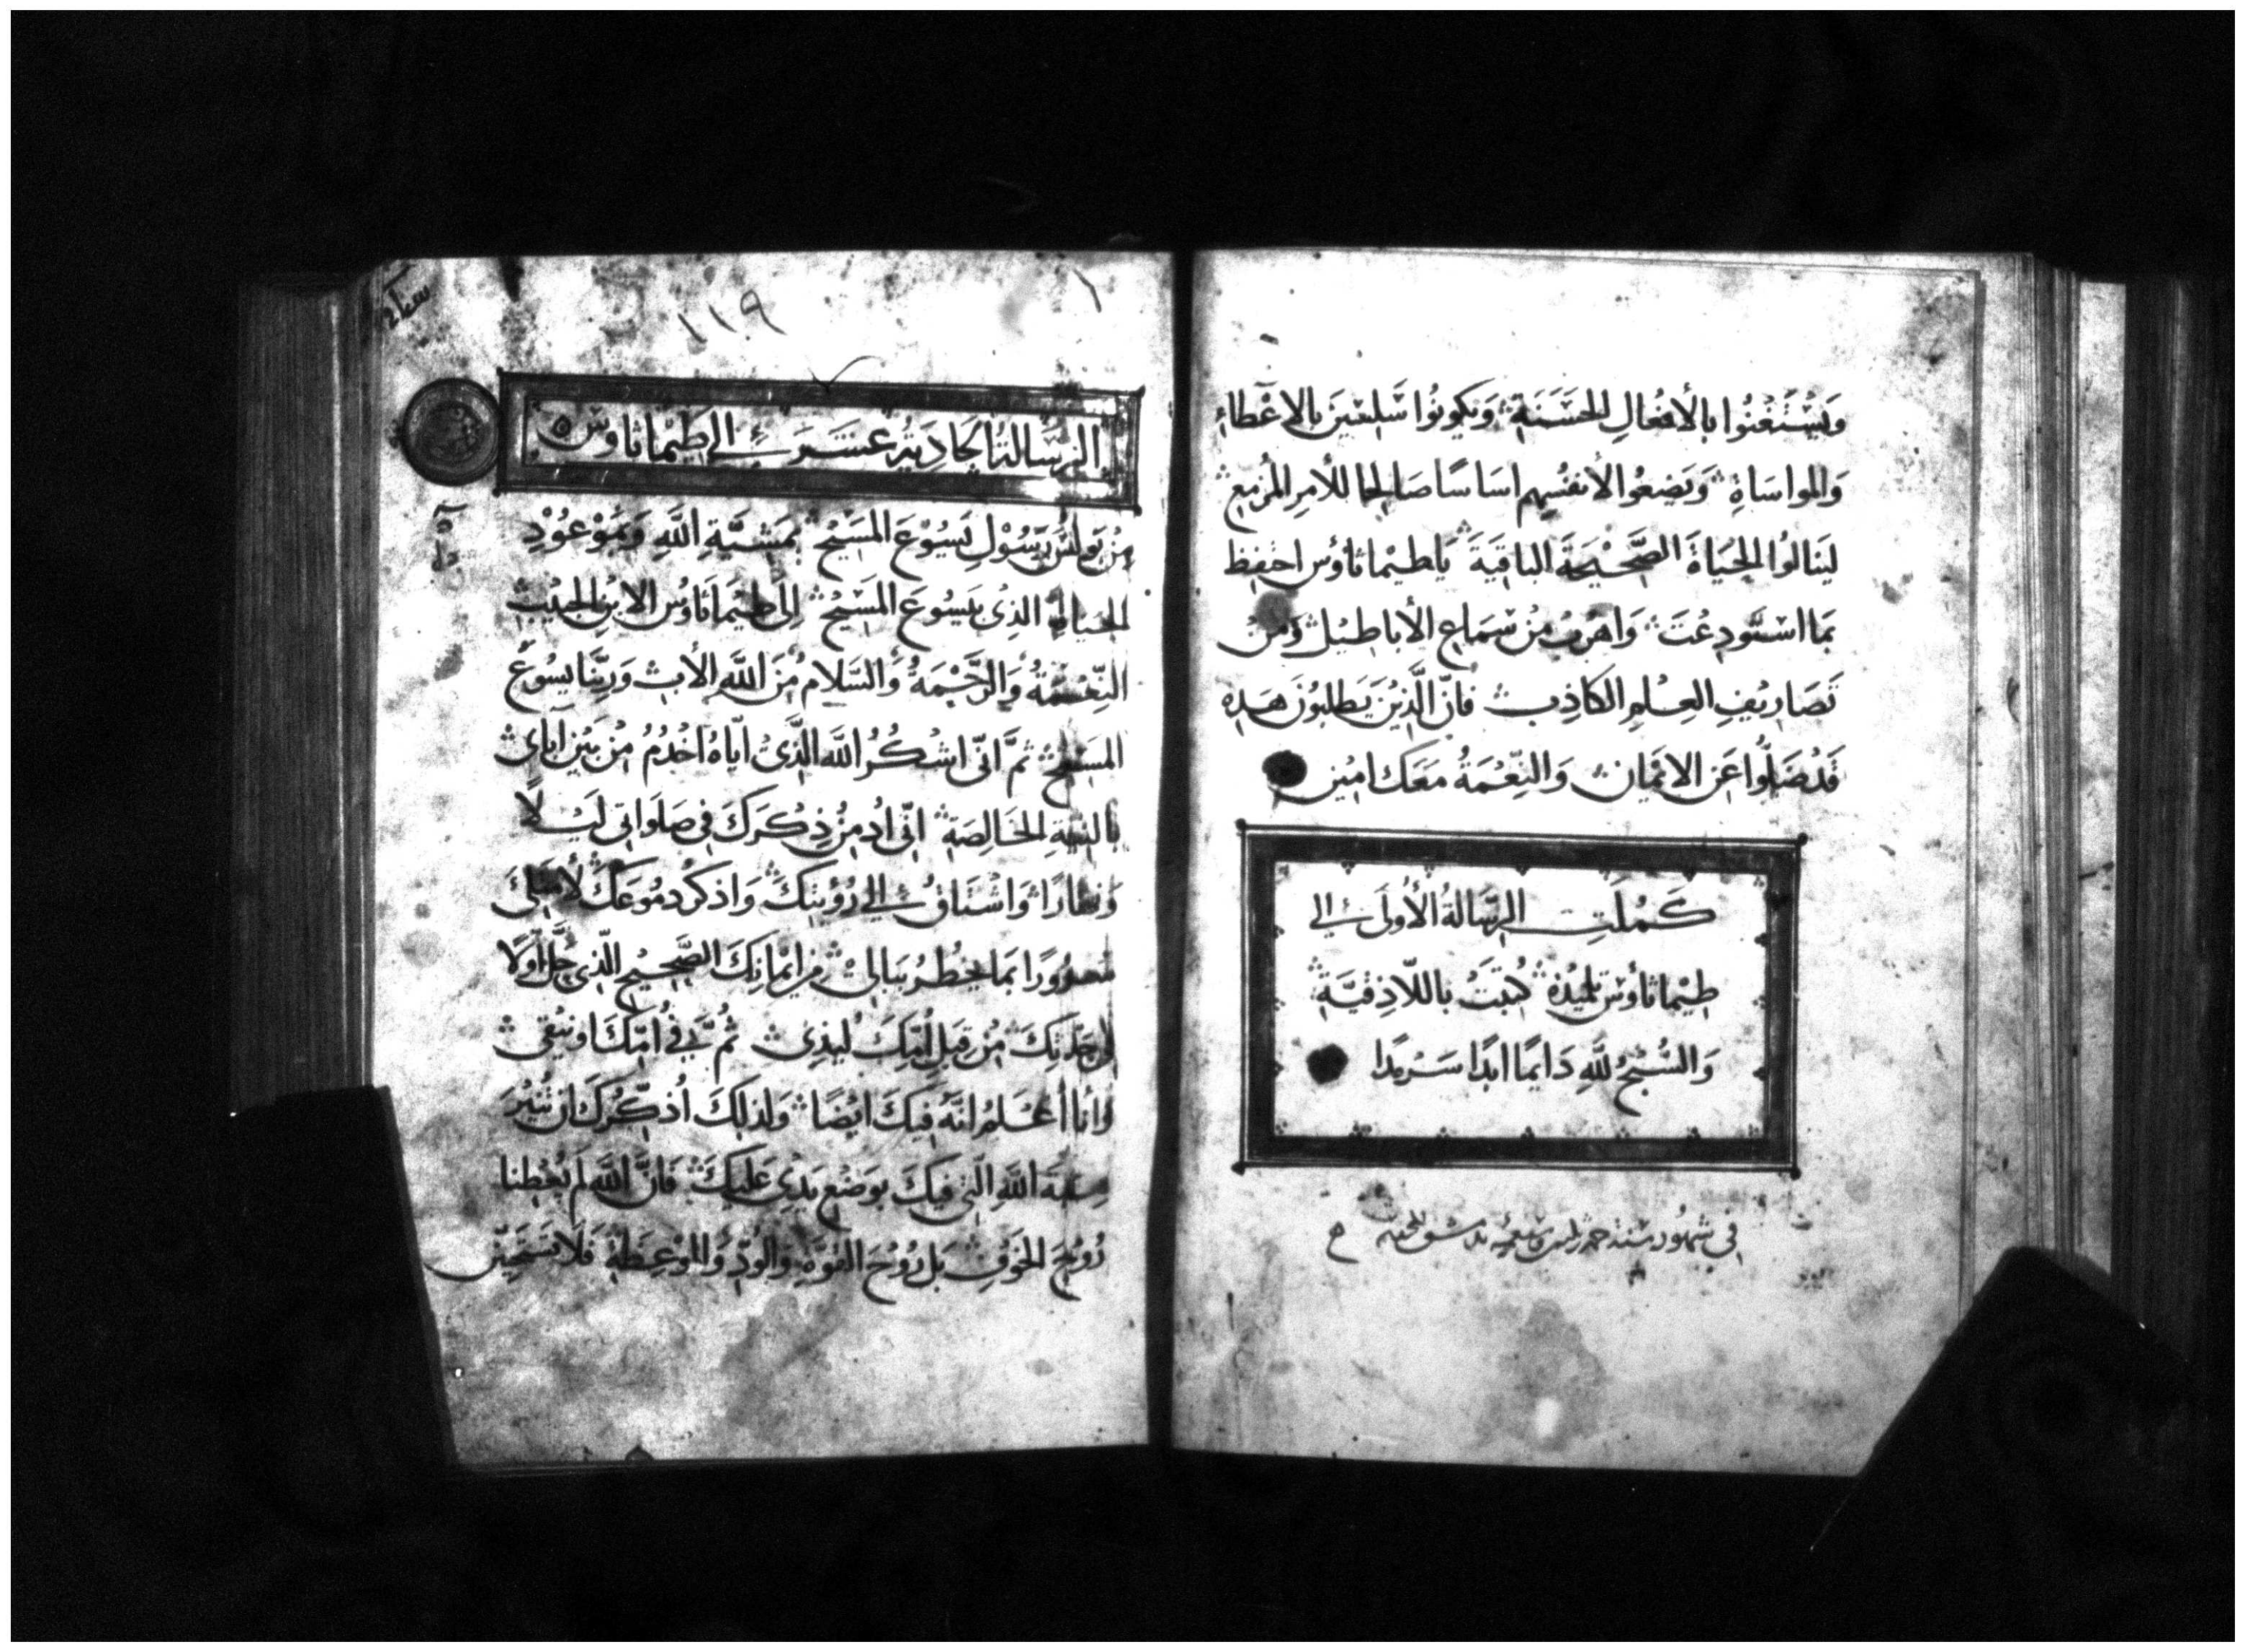 وَيَسْتَغْنُوا بالأفعالِ الحَسَنَةِ وَيَكونُوا سَلِسْينَ بالاعْطاءِ
وَالمواسَاةِ وَيَضعُوا لأنفُسِهم اسَاسًا صَالِحا للأمرِ المُزمعِ
ليَنالوُا الحَيَاةَ الصَّحْيحَةَ الباقيَةَ يَا طيْماثاوُس احْفِظ
بمَا اسْتَودِعْتَ وَاهْربْ مِنْ سَمَاعِ الأباطيْل وَمنْ
تَصَاريْفِ العِلمِ الكاذِبِ فانّ الَّذينَ يَطلبوُنَ هَدِه
قَدْ ضَلّوُا عَن الايْمَانِ وَالنِّعْمَةُ معَك امِيْن
كَمُلَتِ الرِّسَالَةُ الأُولَى إلى
طيْماثاوُس تلميْذهِ كُتبَتْ باللّاذِقيَّةِ
وَالسُّبْحُ للَّهِ دَايمًا ابَدًا سَرْمَدًا
في شهور سنة
١١٩
الرسَالَة الحَادِيَة عَشَرَ إلى طيماثاوس
مِنْ بَولسَ رَسُوْلِ يَسُوْعَ المَسِيْح بمَشيَّةِ اللَّهِ وَبمَوْعُوْدِ
الحيَاةِ الذِى بيَسُوعَ المَسَيْحِ إلى طيْمَاثَاوُس الابنِ الحَبيْبِ
النِّعْمَةُ وَالرَّحْمَةُ وَالسَلامُ مِنَ اللَّهِ الأبِ وَرَبِّنَا يَسُوعَ
المسَيْح ثمَّ انّى اشكُرُ اللَّه الَّذىْ ايّاهُ اخْدُمُ مِنْ بَيْنِ ابَاىَ
بالنيّةِ الخَالِصَةِ انّى ادْمِنُ ذِكرَكَ فى صَلَوَاتى ليْلاً
وَنهَارًا وَاشتَاقُ إلى رُؤْيتِكَ وَاذكرُ دمُوعَكَ لأمتلِئَ
سُرُوْرًا بمَا يَخطرُ ببَالى مِن ايْمَانِكَ الصَّحِيْحِ الّذِى حَلَّ اوّلاً
فى جَدّتِكَ مِنْ قبَلِ امّكَ ليذىْ ثُمَّ فى امّكَ اونيْقى
وَانا أعْلَمُ انَّهُ فيكَ ايْضًا وَلذلِكَ اُذَكِّرُكَ ان تُثيْرَ
اللَّهِ الّتى فيْكَ بوَضْعِ يَدِىْ عَليْكَ فَانَّ اللَّهَ لمْ يُعْطِنا
رُوْحَ الخَوْفِ بَل رُوْحَ القوَّةِ وَالودِّ وَالموْعِظَةِ فَلَا تَسَتَحِيَنّ